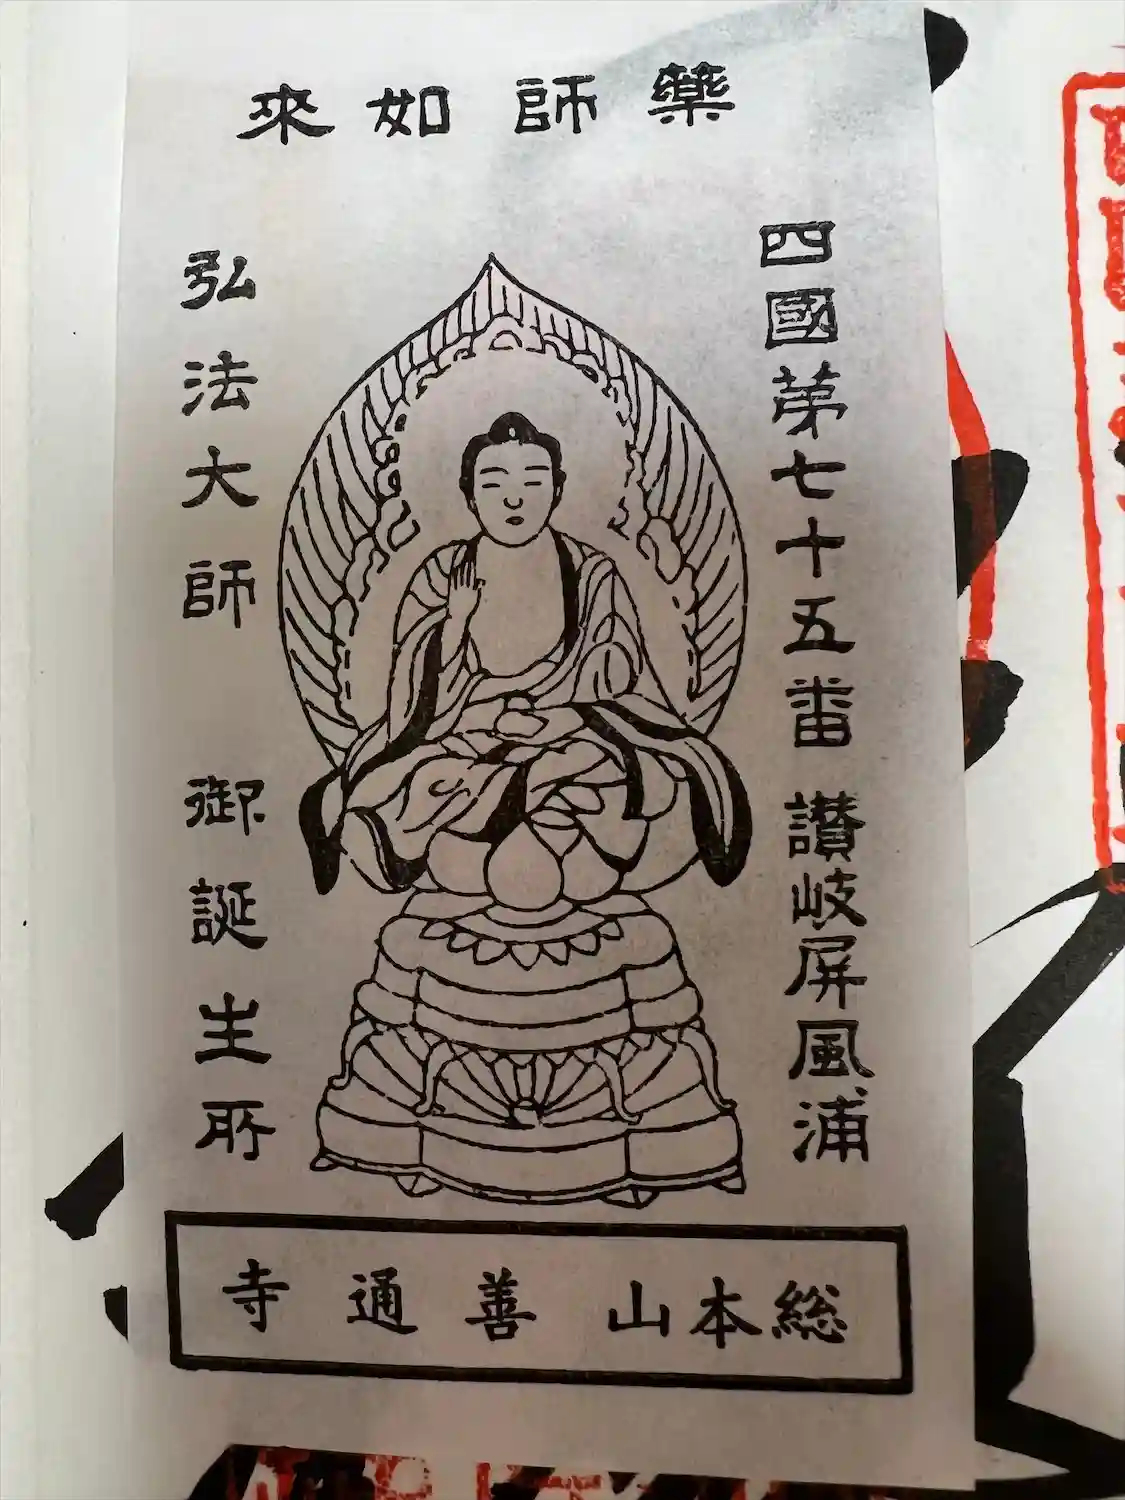 藥師如來
四國第七十五番 讃岐屏風浦
弘法大師 御誕生所
総本山 善通寺